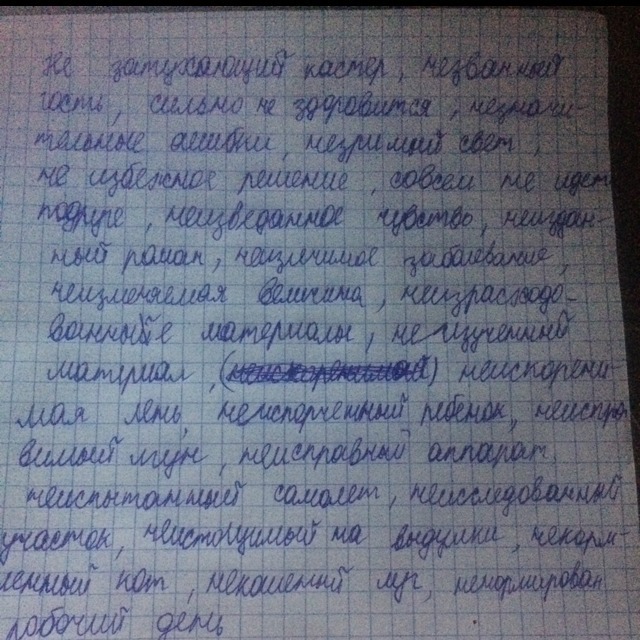 Не затухающий кастер, незванный
гость, сильно не здоровится, незначи-
тельные ошибки, незримый свет,
не избежное решение, совсем не идет
подруге, неизведанное чувство, неиздан-
ный роман, неизлечимое заболевание,
неизменяемая величина, неизрасходо-
ванные материалы, не изученный
материал, неискорени
мая лень, неиспорченный ребенок, неиспра
вимый лгун, неисправный аппарат
неиспытанный самолет, неисследованный
участок, неистощимый на выдумки, некорм-
ленный кот, некошенный луг, ненормирован
рабочий день